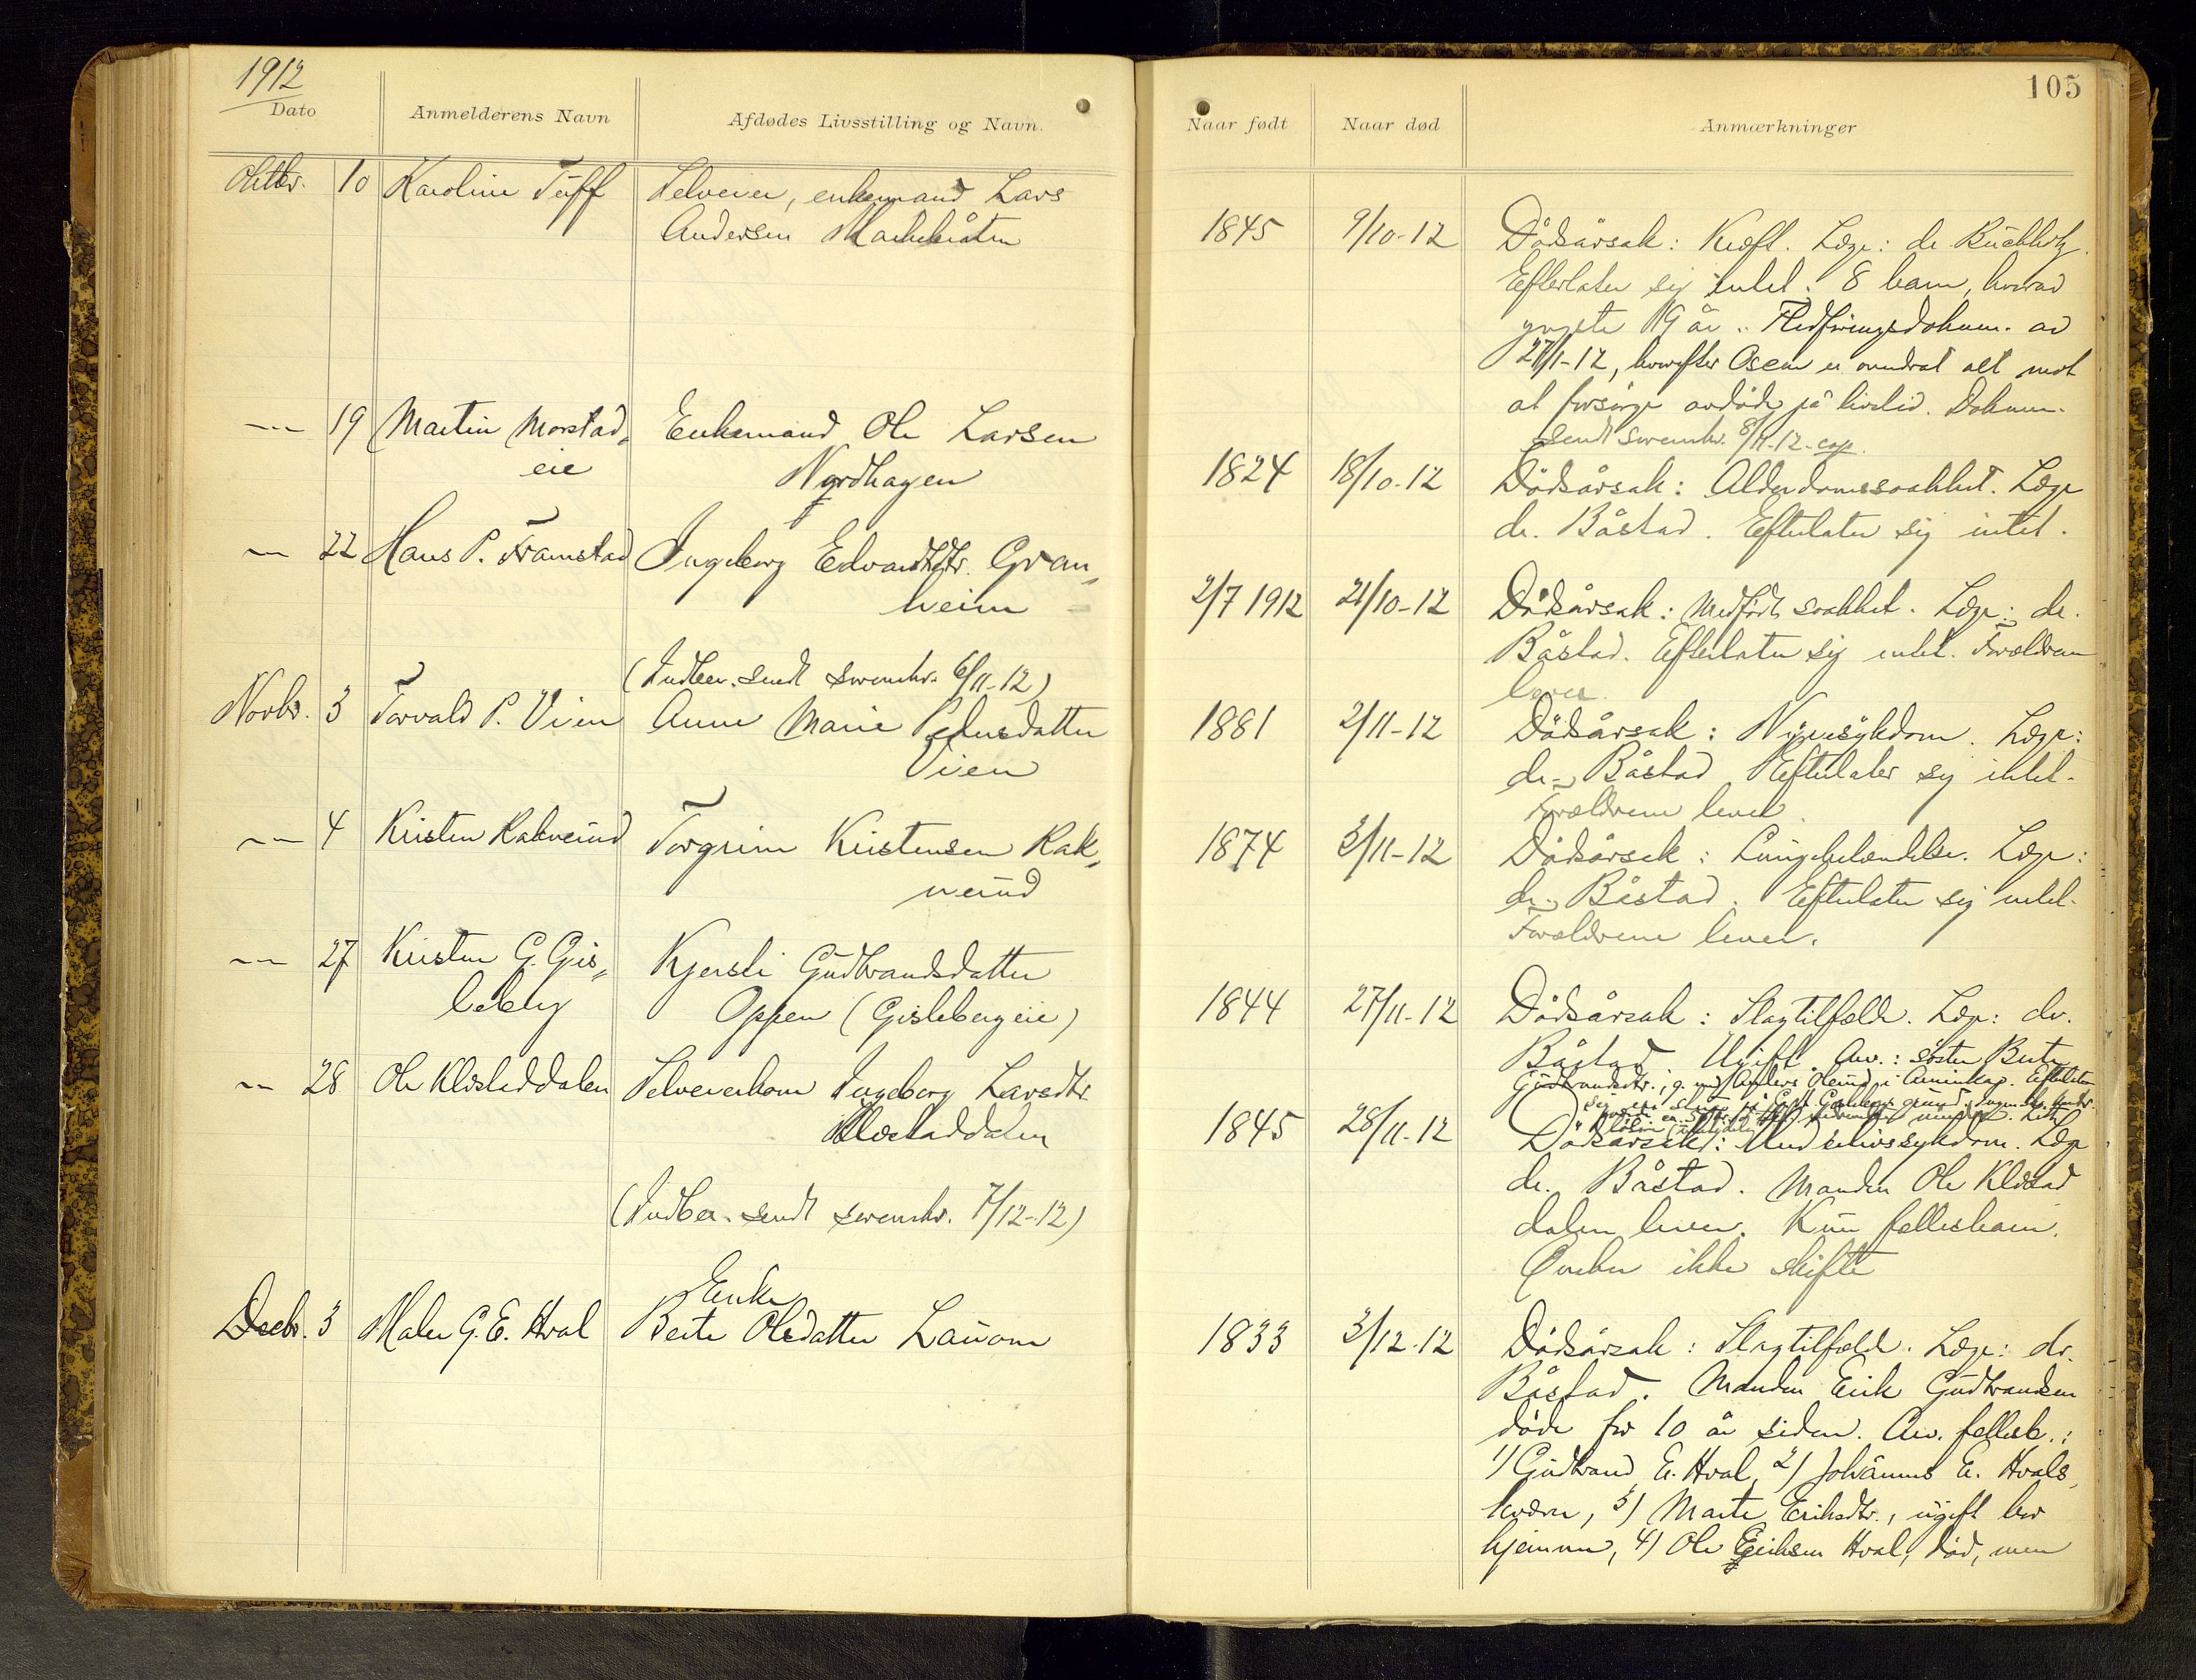 1912
105
Dato
Anmelderens Navn
Afdødes Livsstilling og Navn.
Naar født
Naar død
Anmærkninger
Oktbr. 10 Karoline Tuff Selveier, enkemand Lars
Andersen
1845 9/10-12 Dödsårsak: Kræft. Læge: dr Buchholz.
Efterlater sig intet. 8 barn, hvorav
yngste 19 år. Fledföringsdokum. av
27/1-12, hvorefter er overdrat alt mot
at forsörge avdöde på livstid. Dokum.
sendt sorenskr. 8/11-12-
-"- 19 Martin Morstad„ Enkemand Ole Larsen
eie Nordhagen
1824 18/10-12 Dödsårsak: Alderdomssvakhet. Læge
dr. Båstad. Efterlater sig intet.
-"- 22 Hans P. Framstad Ingeborg Edvardsdtr. Gran„
heim
2/7 1912 21/10-12 Dödsårsak: Medfödt svakhet. Læge: dr.
Båstad. Efterlater sig intet. Forældrene
lever.
(Indber. sendt sorenskr. 6/11-12)
Novbr. 3 Torvald P. Vien Anne Marie Pedersdatter
Vien
1881 2/11-12 Dödsårsak: Nyresykdom. Læge:
dr. Båstad. Efterlater sig intet.
Forældrene lever.
-"- 4 Kristen Raknerud Torgrim Kristensen Rak„
nerud
1874 3/11-12 Dödsårsak: Lungebetændelse. Læge:
dr. Båstad. Efterlater sig intet.
Forældrene lever.
-"- 27 Kristen G. Gis„ Kjersti Gudbrandsdatter
leberg Oppen (Gisleberg eie)
1844 27/11-12 Dödsårsak: Slagtilfælde. Læge: dr.
Båstad. Ugift. Arv.: söster Berte
Gudbrandsdtr., g. med Anders
-"- 28 Ole Klöstaddalen Selveierkone Ingeborg Larsdtr.
Klöstaddalen
1845 28/11-12 Dödsårsak: Læge
dr. Båstad. Manden Ole Klöstad
dalen lever. Kun fellesbarn.
Önsker ikke skifte
(Indber. sendt sorenskr. 7/12-12)
Enke
Decbr. 3 Maler G. E. Hval Berte Olsdatter Lauom
1833 3/12-12 Dödsårsak: Slagtilfælde. Læge: dr.
Båstad. Manden Erik Gudbrandsen
döde for 10 år siden. Arv. fellesb.:
1) Gudbrand E. Hval, 2) Johannes E. Hvals„
kværn, 3) Marte Eriksdtr., ugift bor
hjemme, 4) Ole Eriksen Hval, död, men